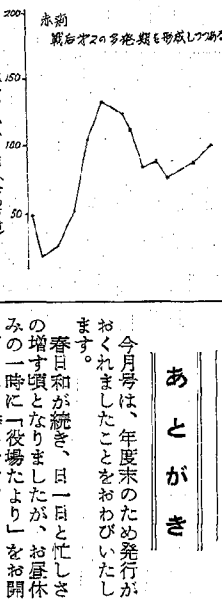 200
赤痢
戦后第2の多発期を形成しつつある
150
100
50
あとがき
今月号は、年度末のため発行が
おくれましたことをおわびいたし
ます。
春日和が続き、日一日と忙しさ
の増す頃となりましたが、お昼休
みの一時に「役場たより」をお開